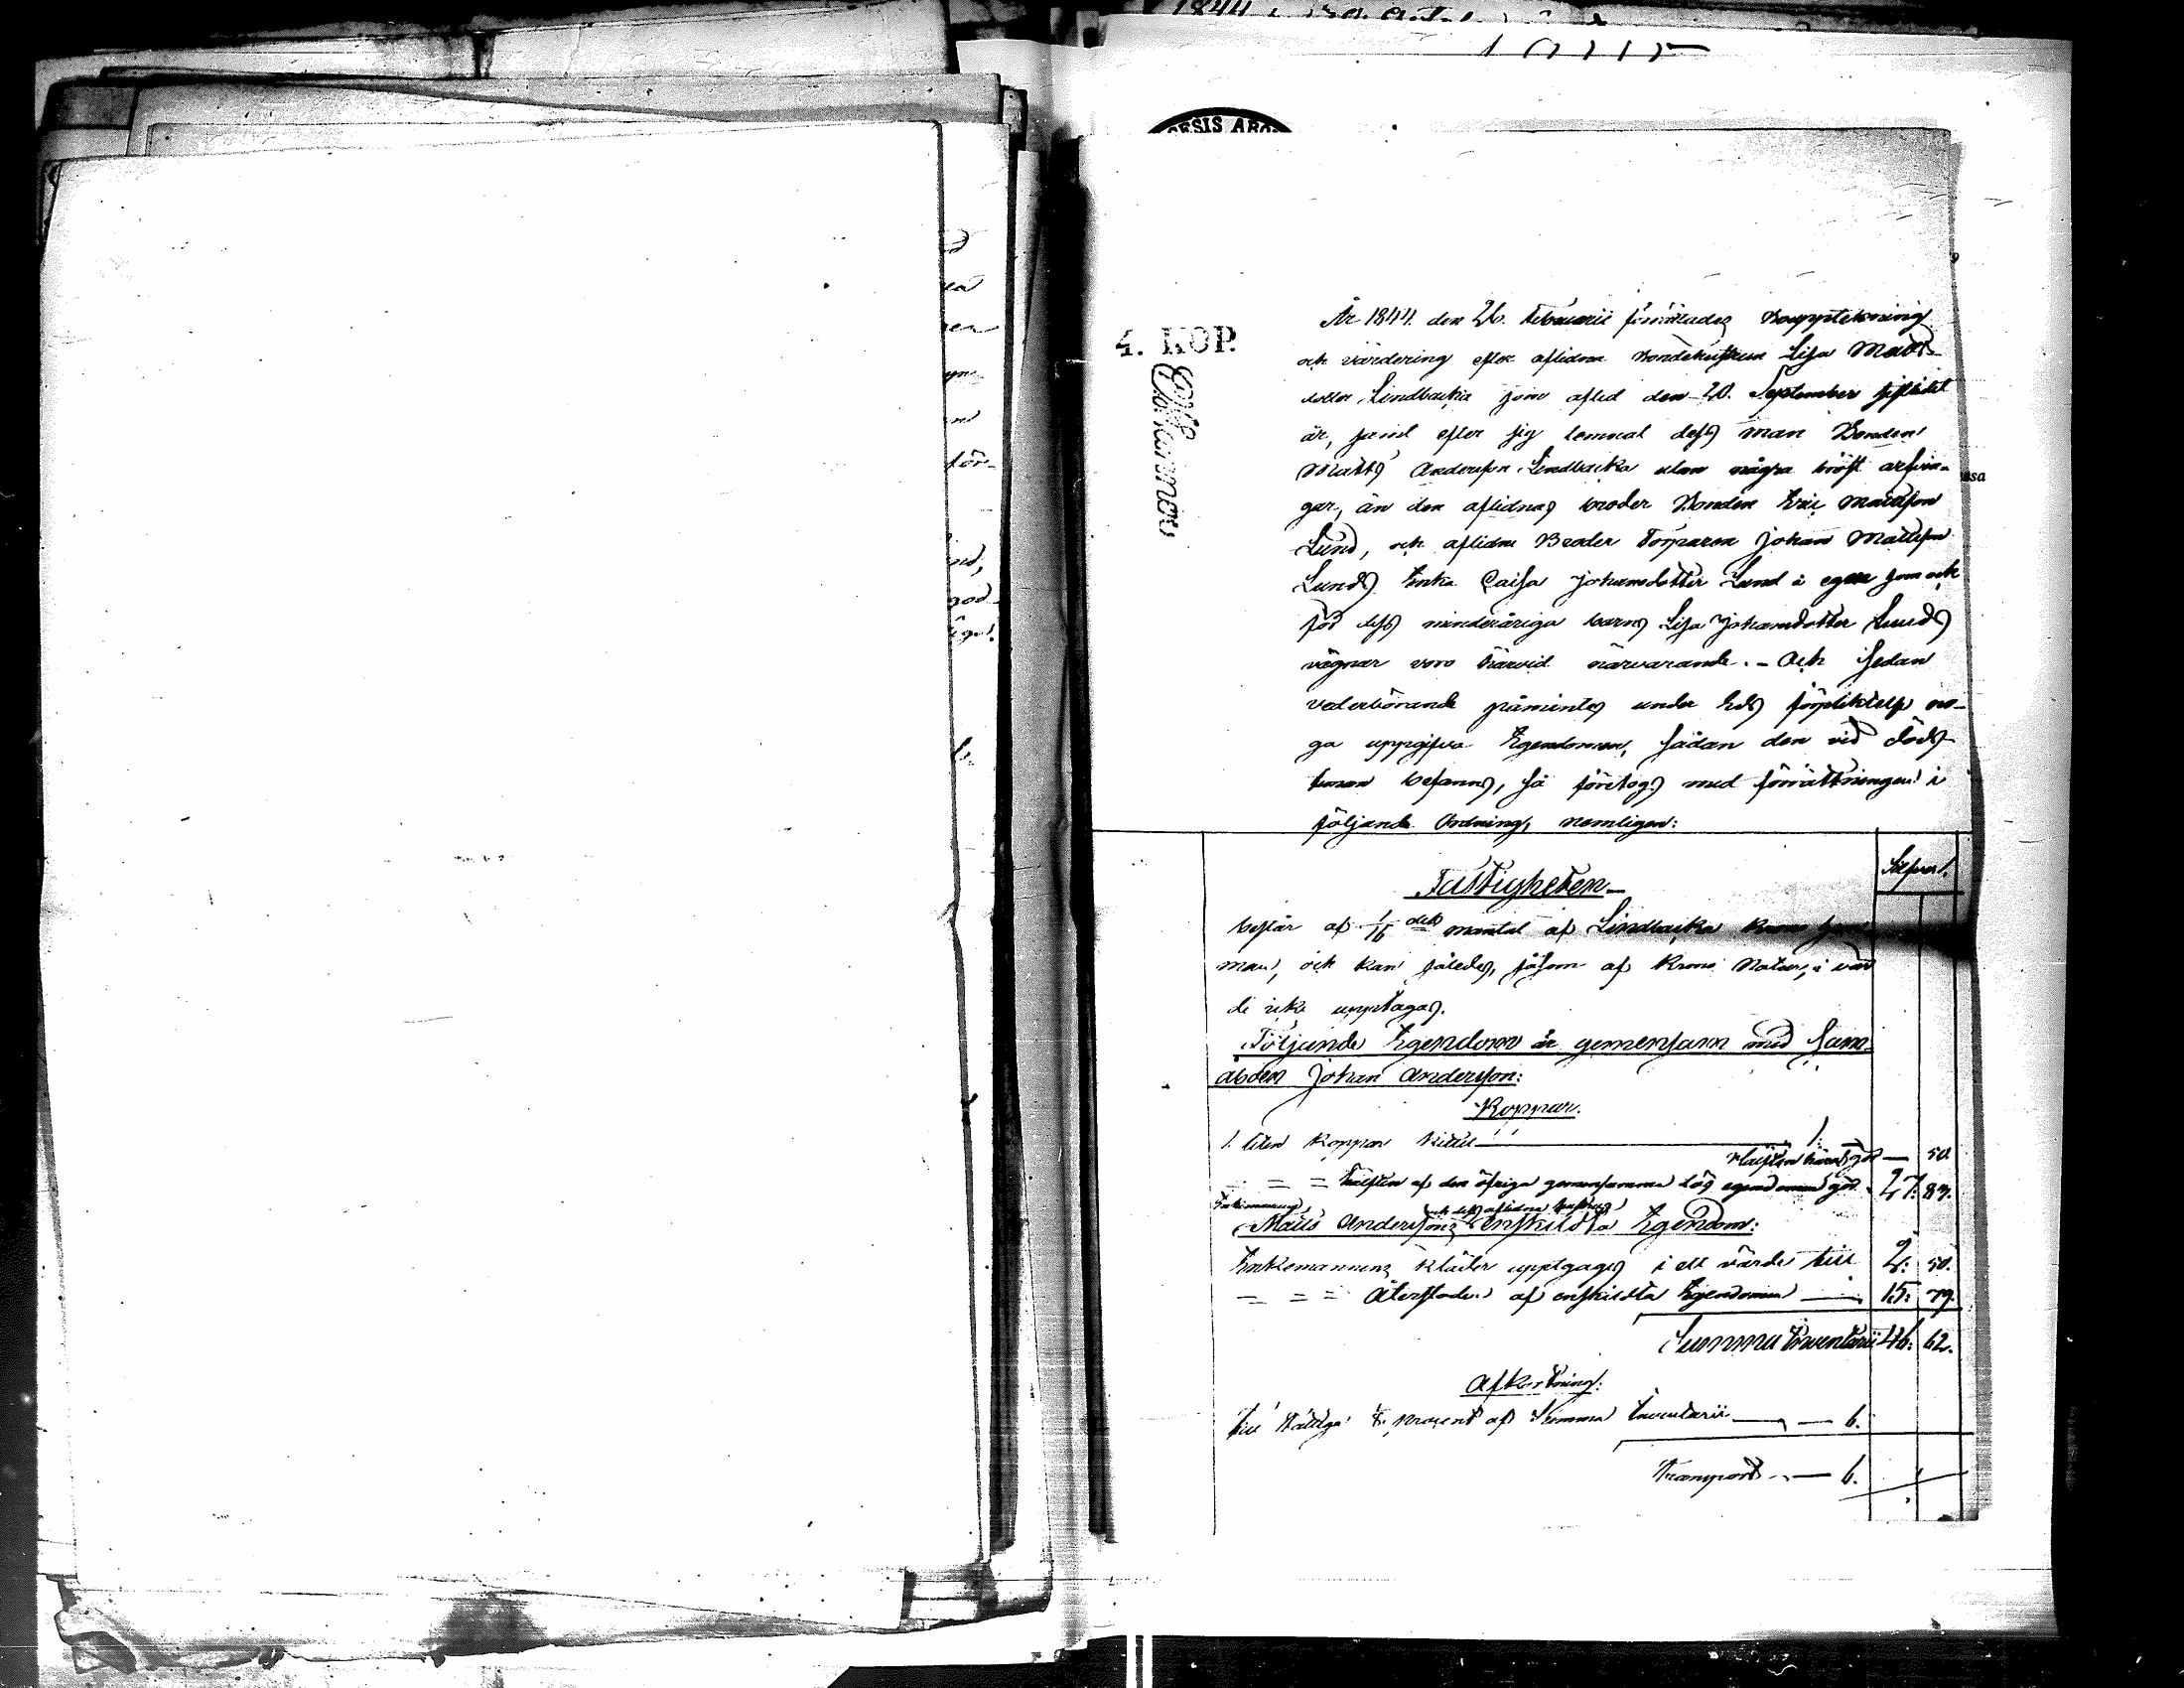 År 1844 den 26. Februarii förrättades Bouppteckning
och värdering efter aflidna Bondehustrun Lisa Matts-
dotter Lindbacka som afled den 20. September sistledet
år, samt efter sig lemnat dess man Bonden
Matts Andersson Lindbacka utan några bröst arfvin-
gar, än den aflidnas broder Bonden Eric Mattsson
Lund, och aflidne Broder Torparen Johan Mattsson
Lunds Enka Caisa Johansdotter Lund i egen som och
för dess minderåriga barns Lisa Johansdotter Lunds
vägnar voro härvid närvarande. - Och sedan
vederbörande påmintes under Eds förpliktelse no-
ga uppgifva Egendomen, sådan den vid döds-
timan befanns, så företogs med förrättningen i
följande Ordning, nemligen:
4. KOP.
Silfver.
Fastigheten
består af 1/16 dels mantal af Lindbacka Krono hem-
man, och kan således, såsom af Krono Natur, i vär
de icke upptagas.
Följande Egendom är gemensam med Sam-
åboen Johan Andersson:
Koppar.
1. liten Koppar Kittel — 1:
Hälften häraf gör — 50.
= = = Hälften af den öfriga gemensamma lös egendomen gör 27: 83.
Enkemannens och dess aflidna hustrus
Matts Anderssons enskilda Egendom:
Enkemannens kläder upptages i ett värde till 2: 50.
= = = Återstoden af enskilda Egendomen — 15: 79.
Summa Inventarii 46: 62.
Afkortning:
Till Fattiga procent af Summa Inventarii — 6.
Transport — 6.